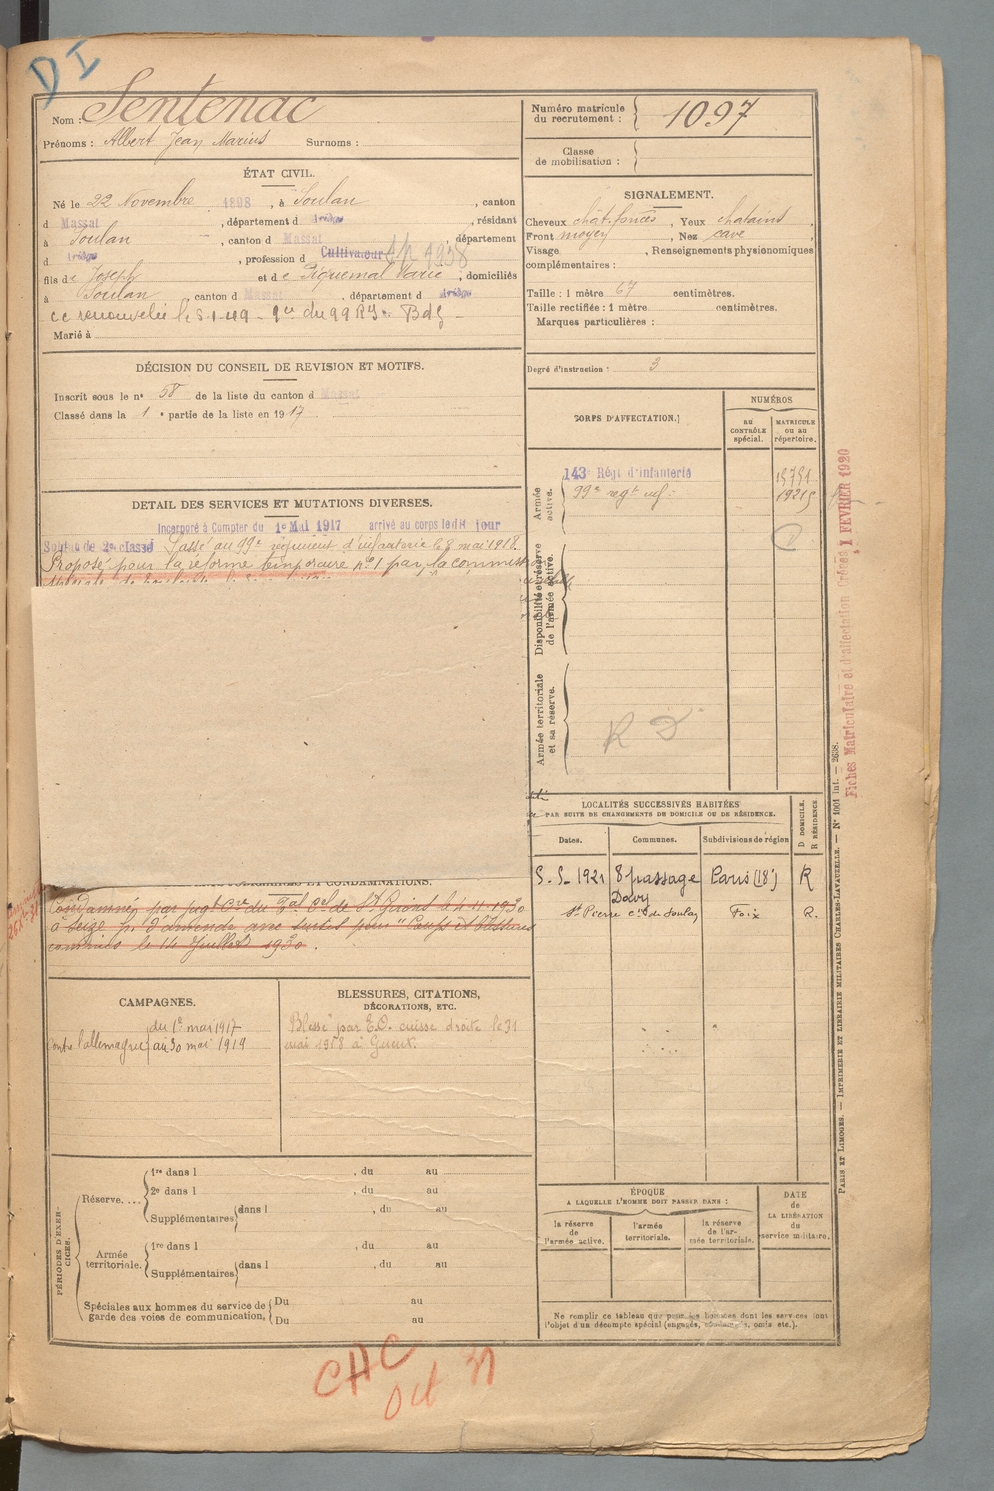 DI
Nom : Sentenac
Prénoms : Albert Jean Marius Surnoms :
Numéro matricule du recrutement : 1097
Classe de mobilisation :
ÉTAT CIVIL.
Né le 22 Novembre 1898, à Soulan, canton
d Massat, département d Ariège, résidant
à Soulan, canton d Massat, département
d Ariège, profession d Cultivateur
fils de Joseph et de Piquemal Marie, domiciliés
à Soulan, canton d Massat, département d Ariège
Marié à
SIGNALEMENT.
Cheveux chât. foncés, Yeux chatains
Front moyen, Nez cave
Visage, Renseignements physionomiques
complémentaires :
Taille : 1 mètre 67 centimètres.
Taille rectifiée : 1 mètre centimètres.
Marques particulières :
Degré d'instruction : 3
DÉCISION DU CONSEIL DE REVISION ET MOTIFS.
Inscrit sous le n° 58 de la liste du canton d Massat
Classé dans la 1e partie de la liste en 1917
DETAIL DES SERVICES ET MUTATIONS DIVERSES.
Incorporé à Compter du 1e Mai 1917 arrivé au corps le dit jour
Soldat de 2e classe Passé au 99e régiment d'infanterie le 8 mai 1918.
Proposé pour la réforme temporaire n°1 par la commission
CORPS D'AFFECTATION.
NUMÉROS
au CONTRÔLE spécial.
MATRICULE ou au répertoire.
Armée active.
143e Régt d'infanterie
99e regt inf.
Disponibilité et réserve de l'armée active.
Armée territoriale et sa réserve.
R D
Fiches Matriculaire et d'affectation Créées 1 FEVRIER 1920
LOCALITÉS SUCCESSIVES HABITÉES
PAR SUITE DE CHANGEMENTS DE DOMICILE OU DE RÉSIDENCE.
Dates. Communes. Subdivisions de région D DOMICILE. R RÉSIDENCE
5.5.1921 8 passage Davy Paris (18e) R
St Pierre cne de Soulan Foix R.
ET CONDAMNATIONS.
Condamné par jugt Cre du Bal Cel de St Girons le 4 11 1930
à seize f. d'amende avec sursis pour "Coups et blessures
commis le 14 Juillet 1930.
CAMPAGNES.
Contre l'allemagne du 1e mai 1917
au 30 mai 1919
BLESSURES, CITATIONS,
DÉCORATIONS, ETC.
Blessé par E.O. cuisse droite le 31
mai 1918 à Gueux.
PÉRIODES D'EXERCICES.
Réserve....
1re dans l , du au
2e dans l , du au
Supplémentaires dans l , du au
Armée territoriale.
1re dans l , du au
Supplémentaires dans l , du au
Spéciales aux hommes du service de garde des voies de communication,
Du au
Du au
ÉPOQUE
A LAQUELLE L'HOMME DOIT PASSER DANS :
la réserve de l'armée active.
l'armée territoriale.
la réserve de l'armée territoriale.
DATE de LA LIBÉRATION du service militaire.
Ne remplir ce tableau que pour les hommes dont les services font
l'objet d'un décompte spécial (engagés, omis etc.).
PARIS ET LIMOGES. — IMPRIMERIE ET LIBRAIRIE MILITAIRES CHARLES-LAVAUZELLE. — N° 1001 int. — 2638.
CHC
Oct 31